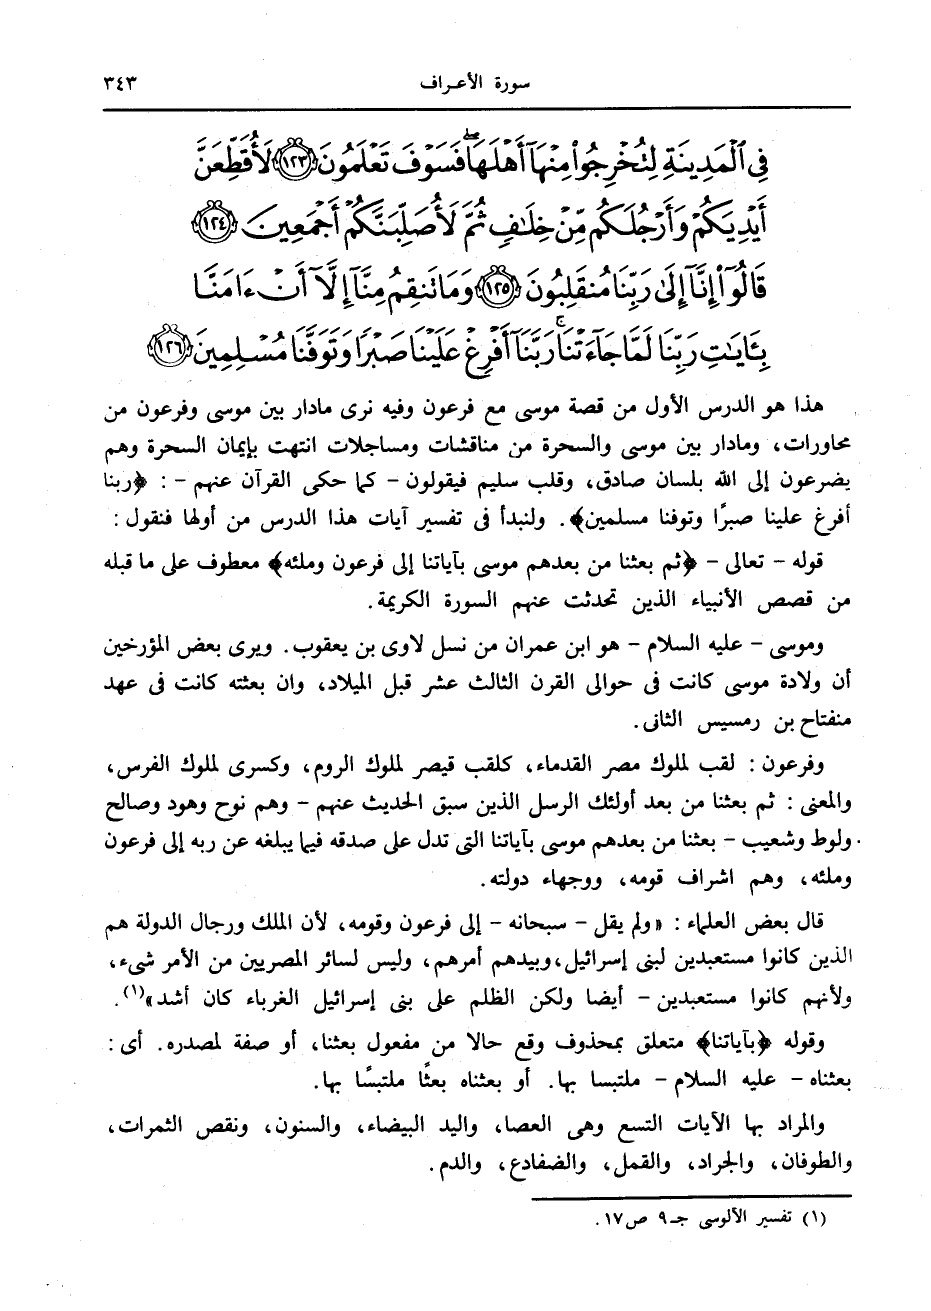 سورة الأعراف ٣٤٣
فِي ٱلْمَدِينَةِ لِتُخْرِجُوا۟ مِنْهَآ أَهْلَهَا ۖ فَسَوْفَ تَعْلَمُونَ ١٢٣ لَأُقَطِّعَنَّ
أَيْدِيَكُمْ وَأَرْجُلَكُم مِّنْ خِلَٰفٍ ثُمَّ لَأُصَلِّبَنَّكُمْ أَجْمَعِينَ ١٢٤
قَالُوٓا۟ إِنَّآ إِلَىٰ رَبِّنَا مُنقَلِبُونَ ١٢٥ وَمَا تَنقِمُ مِنَّآ إِلَّآ أَنْ ءَامَنَّا
بِـَٔايَٰتِ رَبِّنَا لَمَّا جَآءَتْنَا ۚ رَبَّنَآ أَفْرِغْ عَلَيْنَا صَبْرًا وَتَوَفَّنَا مُسْلِمِينَ ١٢٦
هذا هو الدرس الأول من قصة موسى مع فرعون وفيه نرى مادار بين موسى وفرعون من
محاورات، ومادار بين موسى والسحرة من مناقشات ومساجلات انتهت بإيمان السحرة وهم
يضرعون إلى الله بلسان صادق، وقلب سليم فيقولون - كما حكى القرآن عنهم - : ﴿ربنا
أفرغ علينا صبرًا وتوفنا مسلمين﴾. ولنبدأ فى تفسير آيات هذا الدرس من أولها فنقول :
قوله - تعالى - ﴿ثم بعثنا من بعدهم موسى بآياتنا إلى فرعون وملئه﴾ معطوف على ما قبله
من قصص الأنبياء الذين تحدثت عنهم السورة الكريمة.
وموسى - عليه السلام - هو ابن عمران من نسل لاوى بن يعقوب. ويرى بعض المؤرخين
أن ولادة موسى كانت فى حوالى القرن الثالث عشر قبل الميلاد، وان بعثته كانت فى عهد
منفتاح بن رمسيس الثانى.
وفرعون : لقب لملوك مصر القدماء، كلقب قيصر لملوك الروم، وكسرى لملوك الفرس،
والمعنى : ثم بعثنا من بعد أولئك الرسل الذين سبق الحديث عنهم - وهم نوح وهود وصالح
ولوط وشعيب - بعثنا من بعدهم موسى بآياتنا التى تدل على صدقه فيما يبلغه عن ربه إلى فرعون
وملئه، وهم اشراف قومه، ووجهاء دولته.
قال بعض العلماء : «ولم يقل - سبحانه - إلى فرعون وقومه، لأن الملك ورجال الدولة هم
الذين كانوا مستعبدين لبنى إسرائيل، وبيدهم أمرهم، وليس لسائر المصريين من الأمر شىء،
ولأنهم كانوا مستعبدين - أيضا ولكن الظلم على بنى إسرائيل الغرباء كان أشد»(١).
وقوله ﴿بآياتنا﴾ متعلق بمحذوف وقع حالا من مفعول بعثنا، أو صفة لمصدره. أى :
بعثناه - عليه السلام - ملتبسا بها. أو بعثناه بعثًا ملتبسًا بها.
والمراد بها الآيات التسع وهى العصا، واليد البيضاء، والسنون، ونقص الثمرات،
والطوفان، والجراد، والقمل، والضفادع، والدم.
(١) تفسير الألوسى جـ٩ ص١٧.